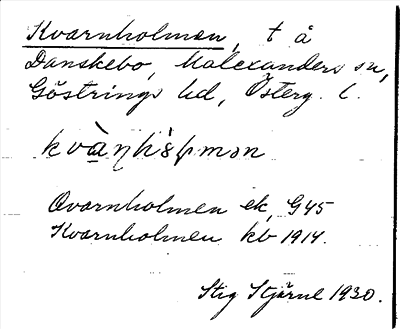 Kvarnholmen, t å
Danskebo, Malexanders sn,
Göstrings hd, Österg. l.
Qvarnholmen ek, G45
Kvarnholmen kb 1914.
Stig Stjärne 1930.